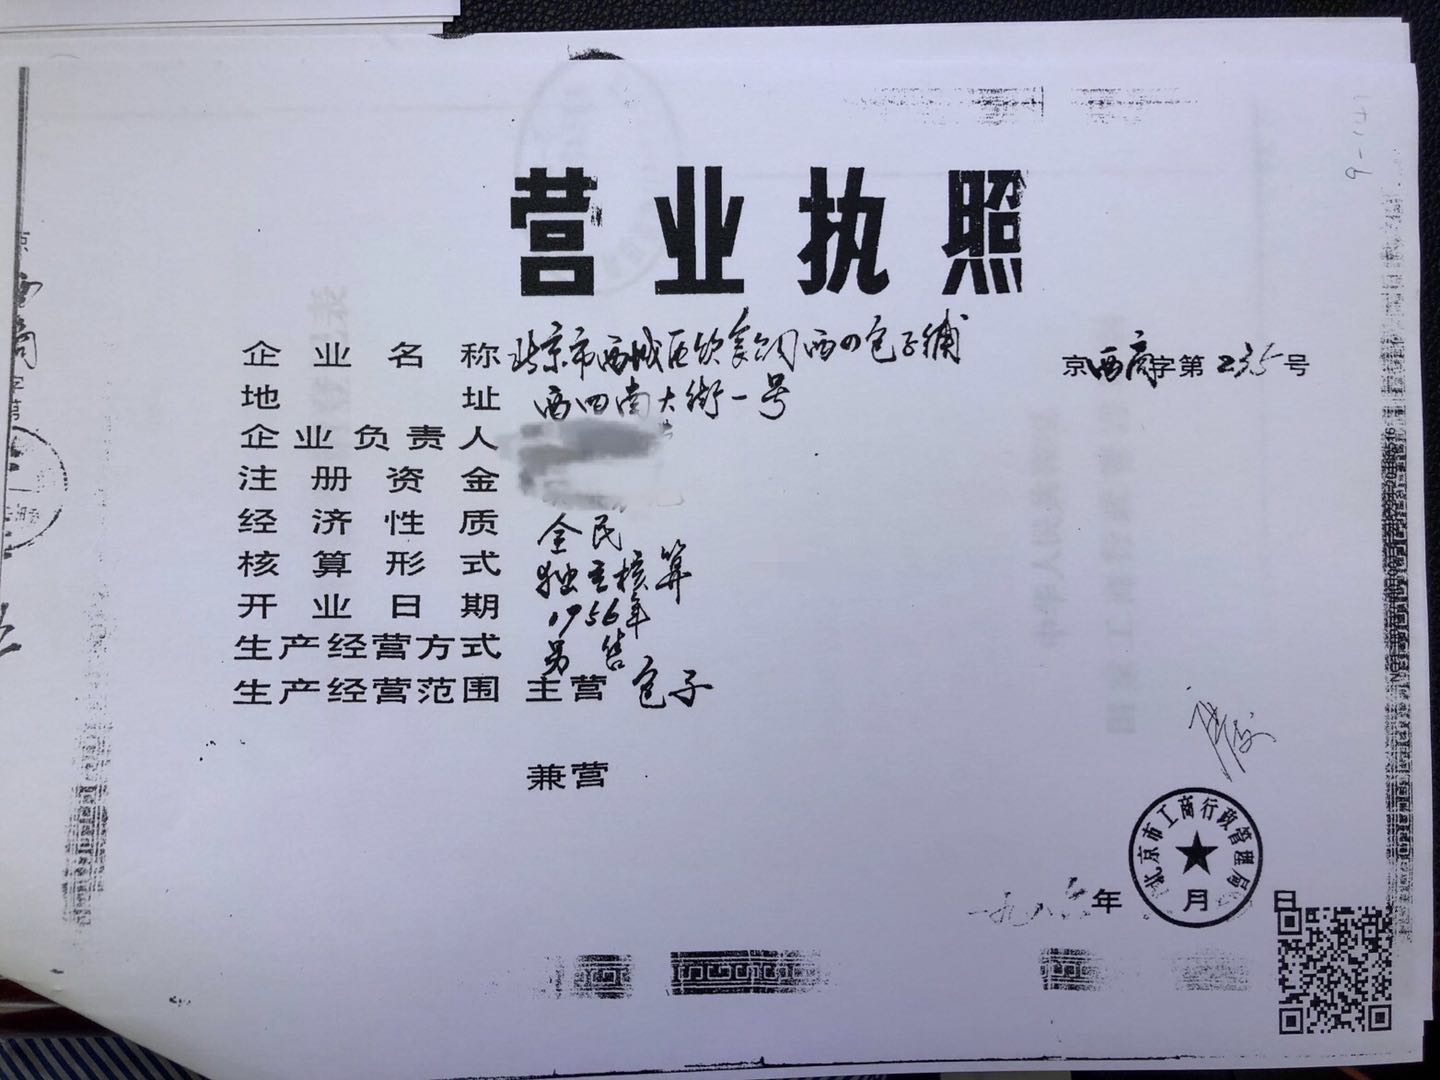 营业执照
企业名称 北京市西城区饮食公司西四包子铺
京西商字第235号
地址 西四南大街一号
企业负责人
注册资金
经济性质 全民
核算形式 独立核算
开业日期 1956年
生产经营方式 另售
生产经营范围 主营 包子
兼营
北京市工商行政管理局
一九八六年 月 日